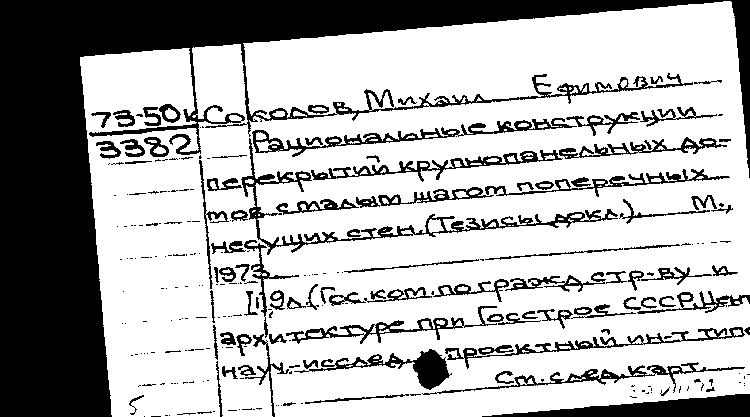 73-50к Соколов, Михаил Ефимович
3382 Рациональные конструкции
перекрытий крупнопанельных до-
мов с малым шагом поперечных
несущих стен. (Тезисы докл.). М.,
1973.
19л. (Гос. ком. по гражд. стр-ву и
архитектуре при Госстрое СССР, Цент
науч.-исслед. проектный ин-т типо
См. след. карт.
5